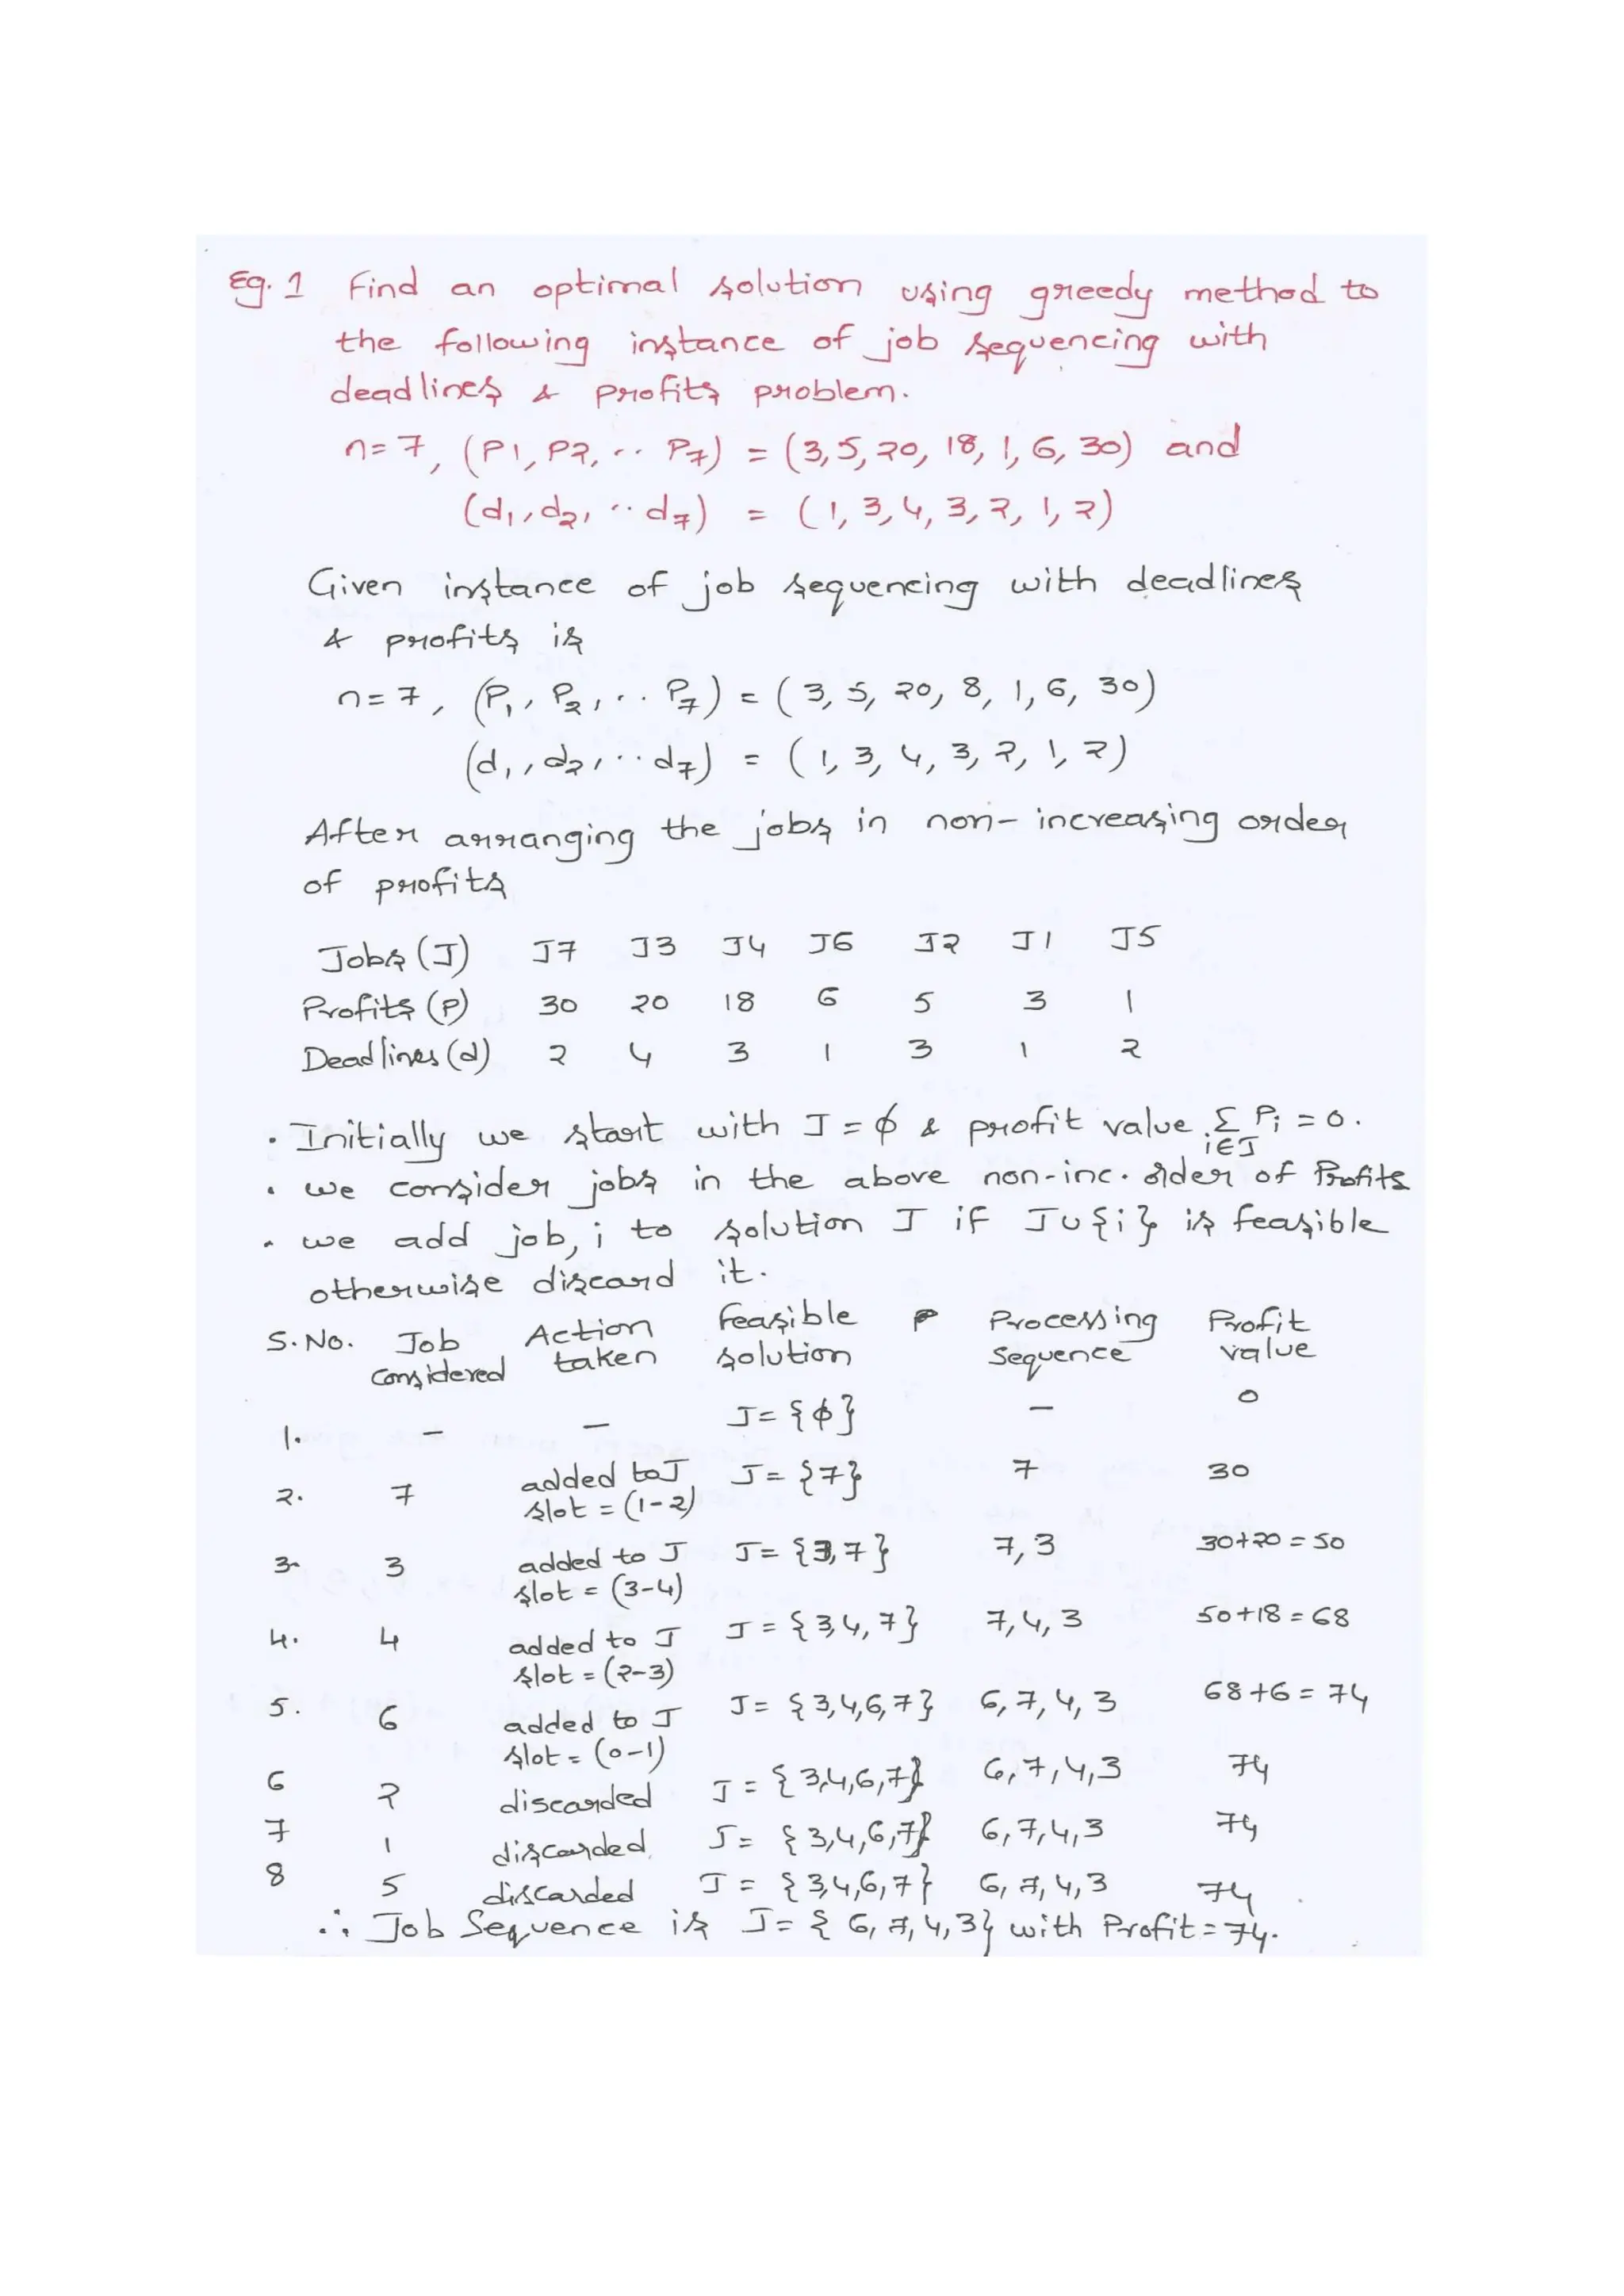 Eg. 1 Find an optimal solution using greedy method to
the following instance of job sequencing with
deadlines & profits problem.
n=7, (P1, P2, .. P7) = (3,5,20, 18, 1, 6, 30) and
(d1, d2, .. d7) = (1, 3, 4, 3, 2, 1, 2)
Given instance of job sequencing with deadlines
& profits is
n=7, (P1, P2, .. P7) = (3, 5, 20, 8, 1, 6, 30)
(d1, d2, .. d7) = (1, 3, 4, 3, 2, 1, 2)
After arranging the jobs in non-increasing order
of profits
Jobs (J) J7 J3 J4 J6 J2 J1 J5
Profits (P) 30 20 18 6 5 3 1
Deadlines (d) 2 4 3 1 3 1 2
· Initially we start with J = ϕ & profit value Σ Pi = 0.
i∈J
· we consider jobs in the above non-inc. order of Profits
· we add job, i to solution J if J∪{i} is feasible
otherwise discard it.
S.No. Job Action feasible Processing Profit
considered taken solution Sequence value
1. – – J={ϕ} – 0
2. 7 added to J J={7} 7 30
slot = (1-2)
3. 3 added to J J={3,7} 7,3 30+20=50
slot = (3-4)
4. 4 added to J J={3,4,7} 7,4,3 50+18=68
slot = (2-3)
5. 6 added to J J={3,4,6,7} 6,7,4,3 68+6=74
slot = (0-1)
6 2 discarded J={3,4,6,7} 6,7,4,3 74
7 1 discarded J={3,4,6,7} 6,7,4,3 74
8 5 discarded J={3,4,6,7} 6,7,4,3 74
∴ Job Sequence is J={6,7,4,3} with Profit=74.